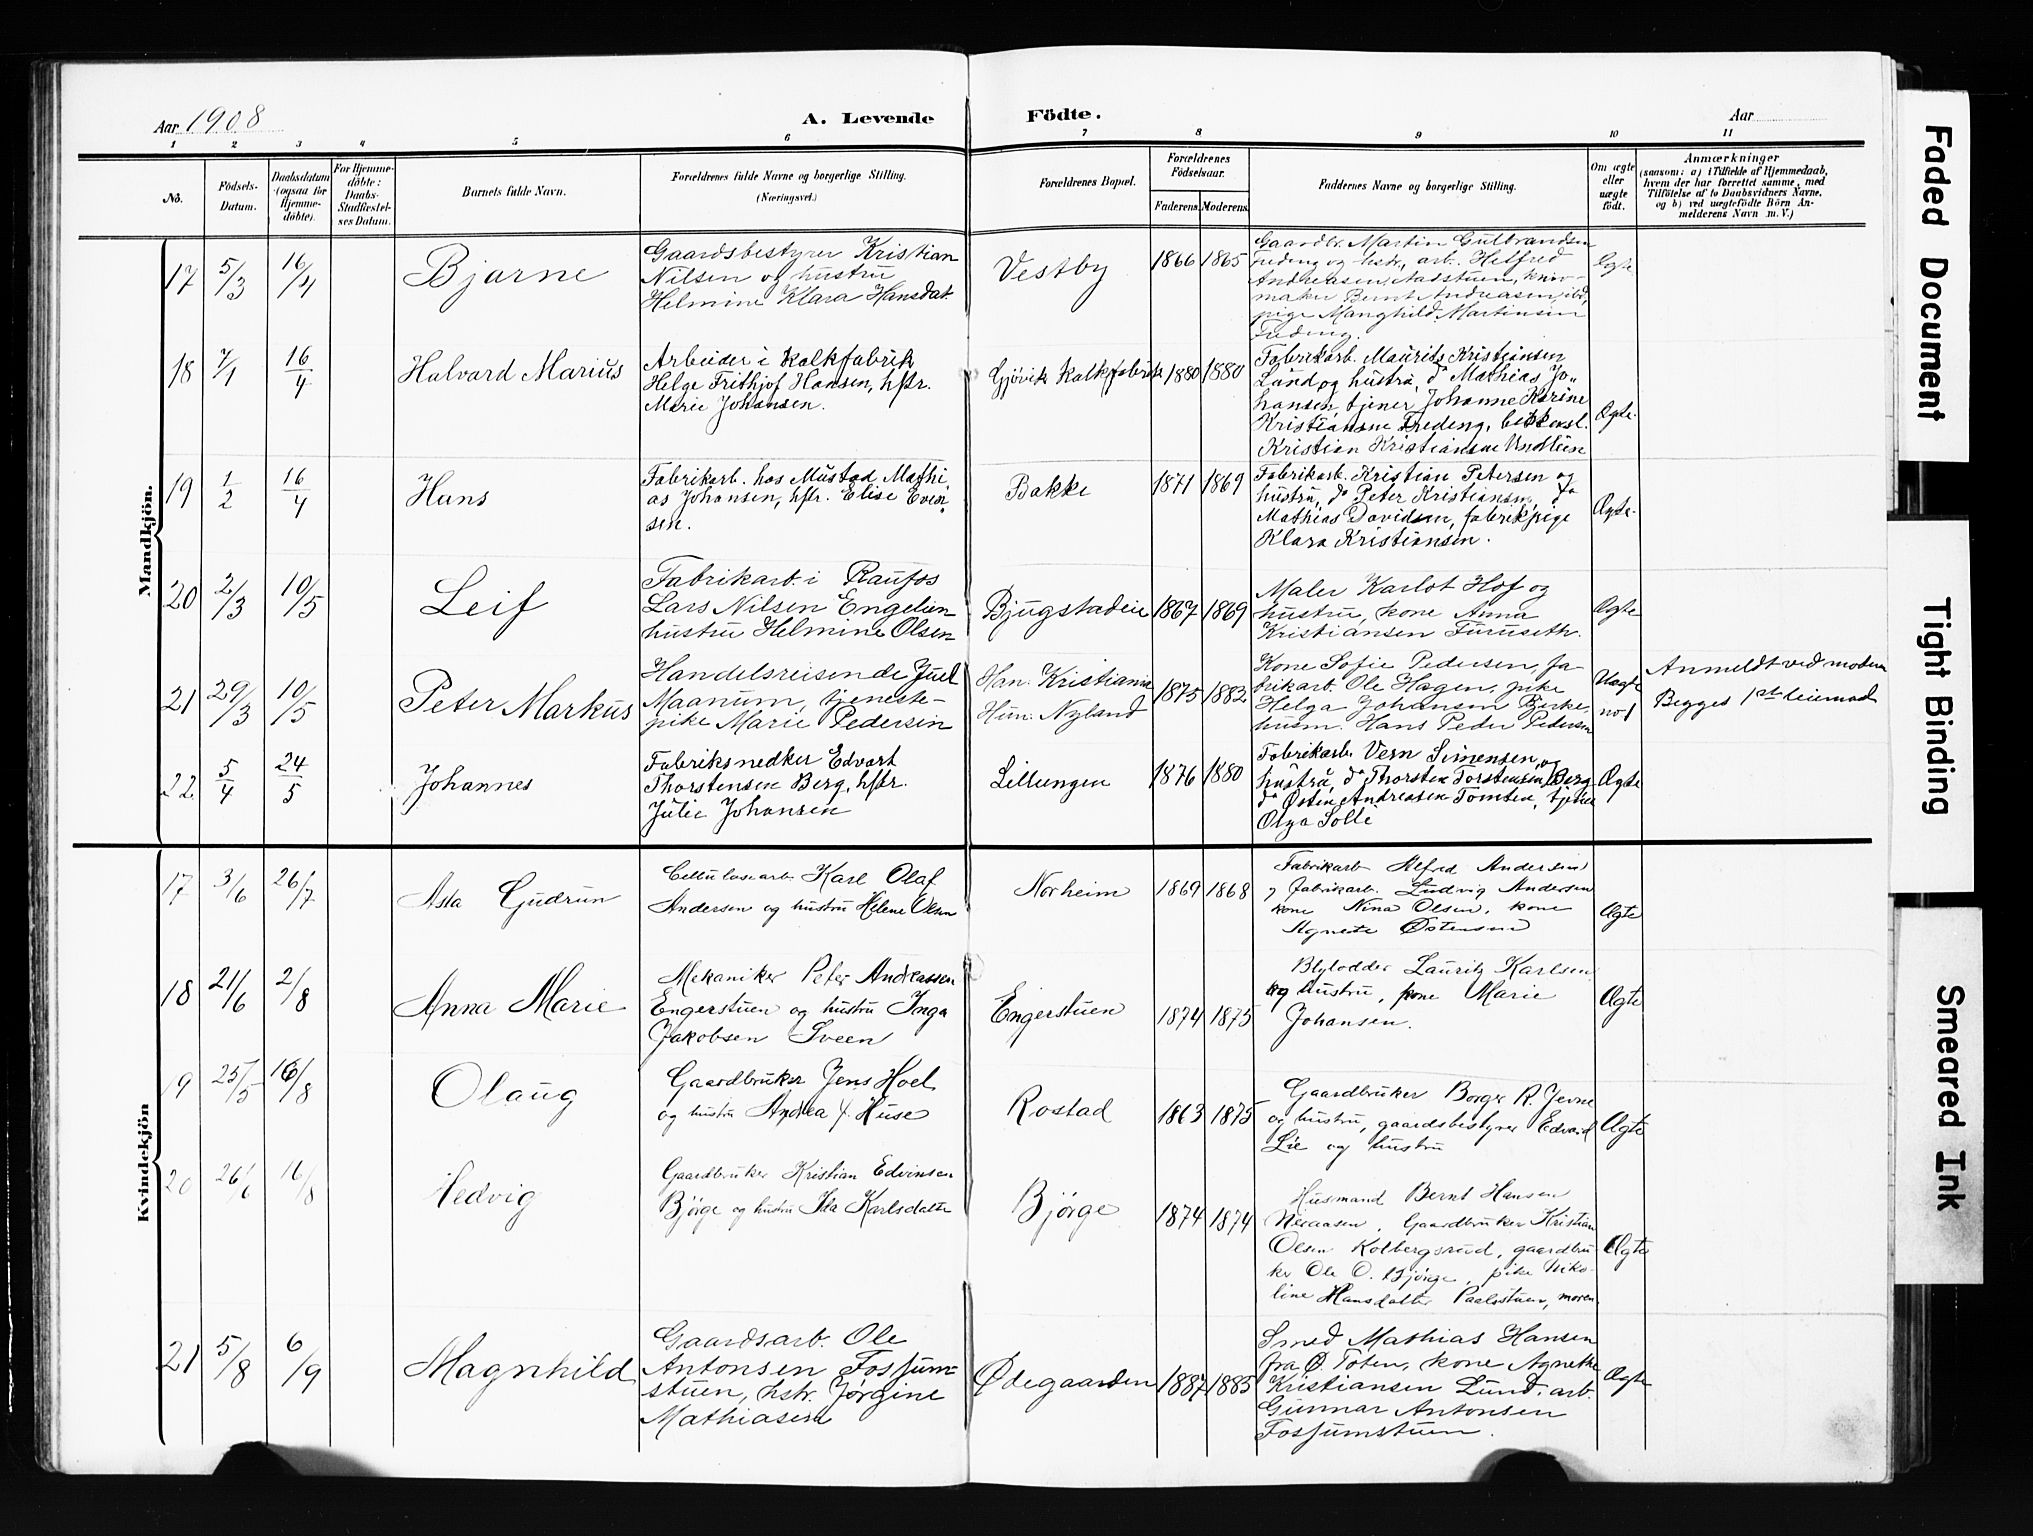 Aar 1908
A. Levende Födte.
Aar
1 2 3 4 5 6 7 8 9 10 11
No.
Födsels-
Datum.
Daabsdatum
(ogsaa for
Hjemme-
döbte).
For Hjemme-
döbte:
Daabs-
Stadfæstel-
ses Datum.
Barnets fulde Navn.
Forældrenes fulde Navne og borgerlige Stilling.
(Næringsvei.)
Forældrenes Bopæl.
Forældrenes
Födselsaar.
Faderens.
Moderens.
Faddernes Navne og borgerlige Stilling.
Om ægte
eller
uægte
födt.
Anmærkninger
(saasom: a) i Tilfælde af Hjemmedaab,
hvem der har forrettet samme, med
Tilföielse af to Daabsvidners Navne,
og b) ved uægtefödte Börn An-
melderens Navn m. V.)
Mandkjön.
17 5/3 16/4 Bjarne
Gaardsbestyrer Kristian
Nilsen og hustru
Helmine Klara Hansdat.
Vestby 1866 1865
Gaardbr. Martin Gulbrandsen
Freding og hstr., arb. Helfred
Andreasen Aadstuen, kniv-
maker Bernt Andreasen ibd,
pige Manghild Martinsen
Freding.
Ægte
18 7/1 16/4 Halvard Marius
Arbeider i Kalkfabrik
Helge Frithjof Hansen, hstr.
Marie Johansen.
Gjövik Kalkfabrik 1880 1880
Fabrikarb. Maurits Kristiansen
Lund og hustru, do Mathias Jo-
hansen, tjener Johanne Karine
Kristiansen Freding,
Kristian Kristiansen
Ægte.
19 1/2 16/4 Hans
Fabrikarb. hos Mustad Mathi-
as Johansen, hstr. Elise Even-
sen.
Bakke 1871 1869
Fabrikarb. Kristian Petersen og
hustru, do Peter Kristiansen, do
Mathias Davidsen, fabrikpige
Klara Kristiansen.
Ægte.
20 2/3 10/5 Leif
Fabrikarb. i Raufos
Lars Nilsen Engelien
hustru Helmine Olsen
Bjugstadeie 1867 1869
Maler Karlot Hof og
hustru, kone Anna
Kristiansen Furuseth.
Ægte
21 29/3 10/5 Peter Markus
Handelsreisende Juel
Maanum, tjeneste-
pike Marie Pedersen
Han: Kristiania
Hun: Nyland
1875 1882
Kone Sofie Pedersen, fa-
brikarb. Ole Hagen, pike
Helga Johansen Birke-
husm. Hans Peder Pedersen
Uægte
no 1
Anmeldt ved moderen
Begges 1ste leiemaal
22 5/4 24/5 Johannes
Fabriksnedker Edvart
Thorstensen Berg, hstr.
Julie Johansen
Lillungen 1876 1880
Fabrikarb. Vern Simensen og
hustru, do Thorsten Torstensen Berg
do Østen Andreasen Tomten, tjener
Olga Solli
Ægte
Kvindekjön
17 3/6 26/7 Asta Gudrun
Cellulosearb. Karl Olaf
Andersen og hustru Helene Olsen
Norheim 1869 1868
Fabrikarb. Alfred Andersen
, fabrikarb. Ludvig Andersen
kone Nina Olsen, kone
Agnete Østensen
Ægte
18 21/6 2/8 Anna Marie
Mekaniker Peter Andreassen
Engerstuen og hustru Inga
Jakobsen Sveen
Engerstuen 1874 1875
Blylodder Lauritz Karlsen
og hustru, kone Marie
Johansen.
Ægte
19 25/5 16/8 Olaug
Gaardbruker Jens Hoel
og hustru Andrea f. Huse
Rostad 1863 1875
Gaardbruker Borger R. Jevne
og hustru, gaardsbestyrer Edvard
Lie og hustru
Ægte
20 26/6 16/8 Hedvig
Gaardbruker Kristian Edvinsen
Bjørge og hustru Ida Karlsdatter
Bjørge 1874 1874
Husmand Bernt Hansen
Nesaasen, Gaardbruker Kristian
Olsen Kolbergsrud, gaardbru-
ker Ole O. Bjørge, pike Niko-
line Hansdatter Paalsstuen, moren
Ægte
21 5/8 6/9 Magnhild
Gaardsarb. Ole
Antonsen Fossum-
stuen, hstr. Jørgine
Mathiasen
Ødegaarden 1887 1883
Smed Mathias Hansen
fra Ø. Toten, kone Agnethe
Kristiansen Lund, arb.
Gunnar Antonsen
Fossumstuen.
Ægte
Faded Document
Tight Binding
Smeared Ink